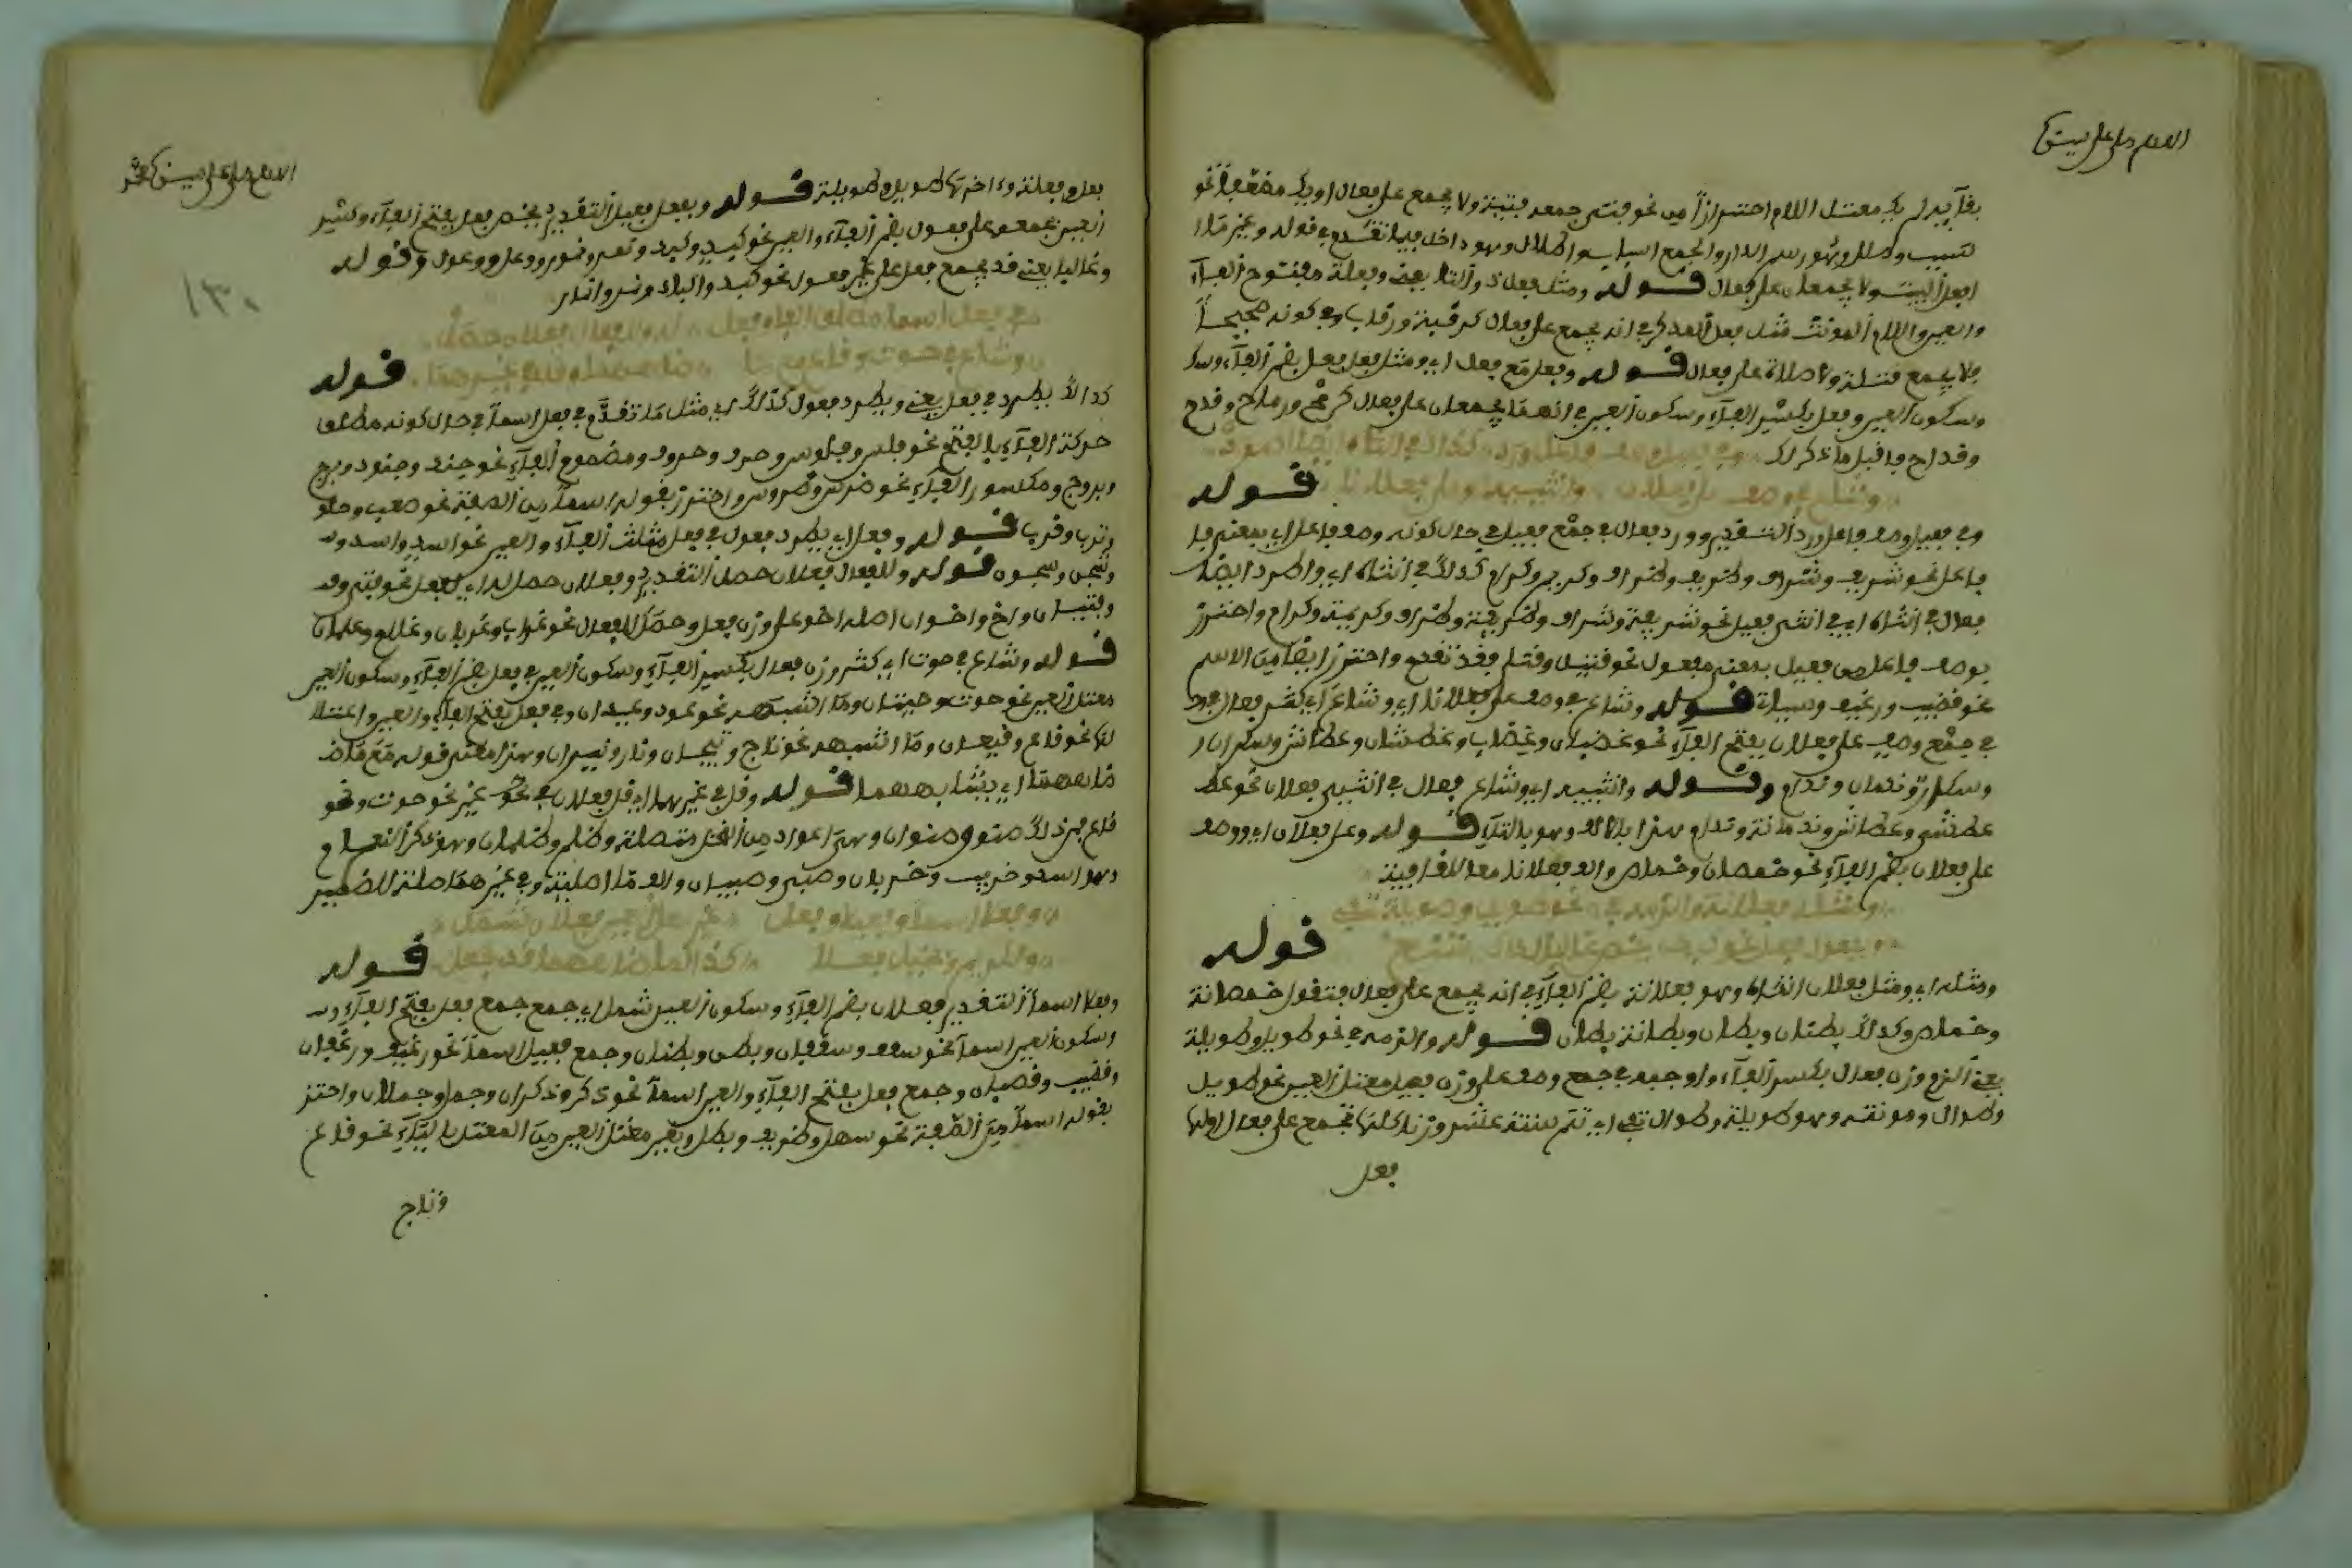 بقاءيه لم يك معتل اللام احترازا من نحو فتى جمعه فتية ولا يجمع على فعال او يك مضعفا نحو
لسبب وطلل وهو رسم الدار والجمع اسباب واطلال وهو داخل فيما تقدم في قوله وغير ما
افعل اثبت ولا يجمعان على فعال قوله ومثل فعل ذو التا يعني وفعلة مفتوح الفاء
والعين واللام المونث مثل فعل المذكر في انه يجمع على فعال كرقبة ورقاب وفي كونه صحيحا
فلا يجمع ولا صلاة على فعال قوله وفعل مع فعل اي ومثل فعل فعل بضم الفاء وسكـ
وسكون العين وفعل بكسر الفاء وسكون العين في انهما يجمعان على فعال كرمح ورماح وقدح
وقداح فاقبل ما ذكر لك وفي فعيل وصف فاعل ورد كذاك في انثاه ايضا اطرد
وشاع في وصف على فعلانا وانثييه او على فعلانا قوله
وفي فعيل وصف فاعل ورد التقدير وورد فعال في جمع فعيل في حال كونه وصف فاعل اي بمعنى فا
فاعل نحو شريف وشراف وظريف وظراف وكريم وكرام كذاك في انثاه اي واطرد ايضا
فعال في انثاه اي في انثى فعيل نحو شريفة وشراف وظريفة وظراف وكريمة وكرام واحترز
بوصف فاعل من فعيل بمعنى مفعول نحو قتيل وقتلى فقد تقدم واحترز ايضا من الاسم
نحو قضيب ورغيف وسبلة قوله وشاع في وصف على فعلانا اي وشاع اي كثر فعال في وصـ
في جمع وصف على فعلان بفتح الفاء نحو غضبان وغضاب وعطشان وعطاش وسكران
وسكارى وندمان وندام وقوله وانثييه اي وشاع فعال في انثيي فعلان نحو عطـ
عطشى وعطاش وندمانة وندام هذا بالالف وهو بالتاء قوله وعلى فعلان اي ووصف
على فعلان بضم الفاء نحو خمصان وخماص والف فعلانا معا للقافية
ومثله فعلانة والزمه في نحو طويل وطويلة تفي
وبفعول فعل نحو كبد يخص غالبا كذاك قوله
ومثله اي ومثل فعلان انثاه وهو فعلانة بضم الفاء في انه يجمع على فعال فتقول خمصانة
وخماص وكذلك بطنان وبطان وبطانة بطان قوله والزمه في نحو طويل وطويلة
يعني الزم وزن فعال بكسر الفاء واوجبه في جمع وصف على وزن فعيل معتل العين نحو طويل
وطوال ومونثه وهو طويلة وطوال تفي اي تتم ستة عشر وزنا كلها تجمع على فعال اولها
فعل
١٣٠
فعل وفعلة واخرها طويل وطويلة قوله وبفعل فعيل التقدير يخص فعل بفتح الفاء وكسر
العين بجمعه على فعول بضم الفاء والعين نحو كبد وكبود ونمر ونمور ووعل ووعول وقوله
وغالبا يعني قد يجمع فعل على غير فعول نحو كبد واكباد ونمر وانمار
في فعل اسما مطلق الفا وفعل له وللفعال فعلان حصل
وشاع في حوت وقاع مع ما ضاهاهما وقل في غيرهما
قوله
كذاك يطرد في فعل يعني ويطرد فعول كذلك اي مثل ما تقدم في فعل اسما في حال كونه مطلق
حركة الفاء بالفتح نحو فلس وفلوس وحرف وحروف ومضموم الفاء نحو جند وجنود وبرج
وبروج ومكسور الفاء نحو ضرس وضروس واحترز بقوله اسما من الصفة نحو صعب وحلو
قوله وفعل اي يطرد فعول في فعل مثلث الفاء والعين نحو اسد واسد
وشجن وشجون قوله وللفعال فعلان حصل التقدير وفعلان حصل له اي لفعل نحو فتى وفتـ
وفتيان واخ واخوان اصله اخو على وزن فعل وحصل للفعال نحو غراب وغربان وغلام وغلمان
قوله وشاع في حوت اي كثر وزن فعلان بكسر الفاء وسكون العين في فعل بضم الفاء وسكون العين
معتل العين نحو حوت وحيتان وما اشبهه نحو عود وعيدان وفي فعل بفتح الفاء والعين واعتلا
لها نحو قاع وقيعان وما اشبهه نحو تاج وتيجان ونار ونيران وهذا معنى قوله مع ما ضـ
ضاهاهما اي يشابههما قوله وقل في غيرهما اي قل فعلان في نحو غير نحو حوت ونحو
قاع فمن ذلك صنو وصنوان وهي اعواد من النخل متصلة وظلم وظلمان وهو ذكر النعام
وهو اسم خرب وخربان وصبي وصبيان والف ما اصلية وفي غيرهما صلة للضمير
وفعلا اسما وفعيلا وفعل غير معل العين فعلان شمل
ولكريم وبخيل فعلا كذا لما ضاهاهما قد جعل قوله
وفعلا اسما التقدير فعلان بضم الفاء وسكون العين شمل اي جمع جمع فعل بفتح الفاء
وسكون العين اسما نحو سقف وسقفان وبطن وبطنان وجمع فعيل اسما نحو رغيف ورغفان
وقضيب وقضبان وجمع فعل بفتح الفاء والعين اسما نحو ذكر وذكران وجمل وجملان واحترز
بقوله اسما من الصفة نحو سهل وظريف وبطل وبغير معتل العين من المعتل بالياء نحو قاع
وتاج